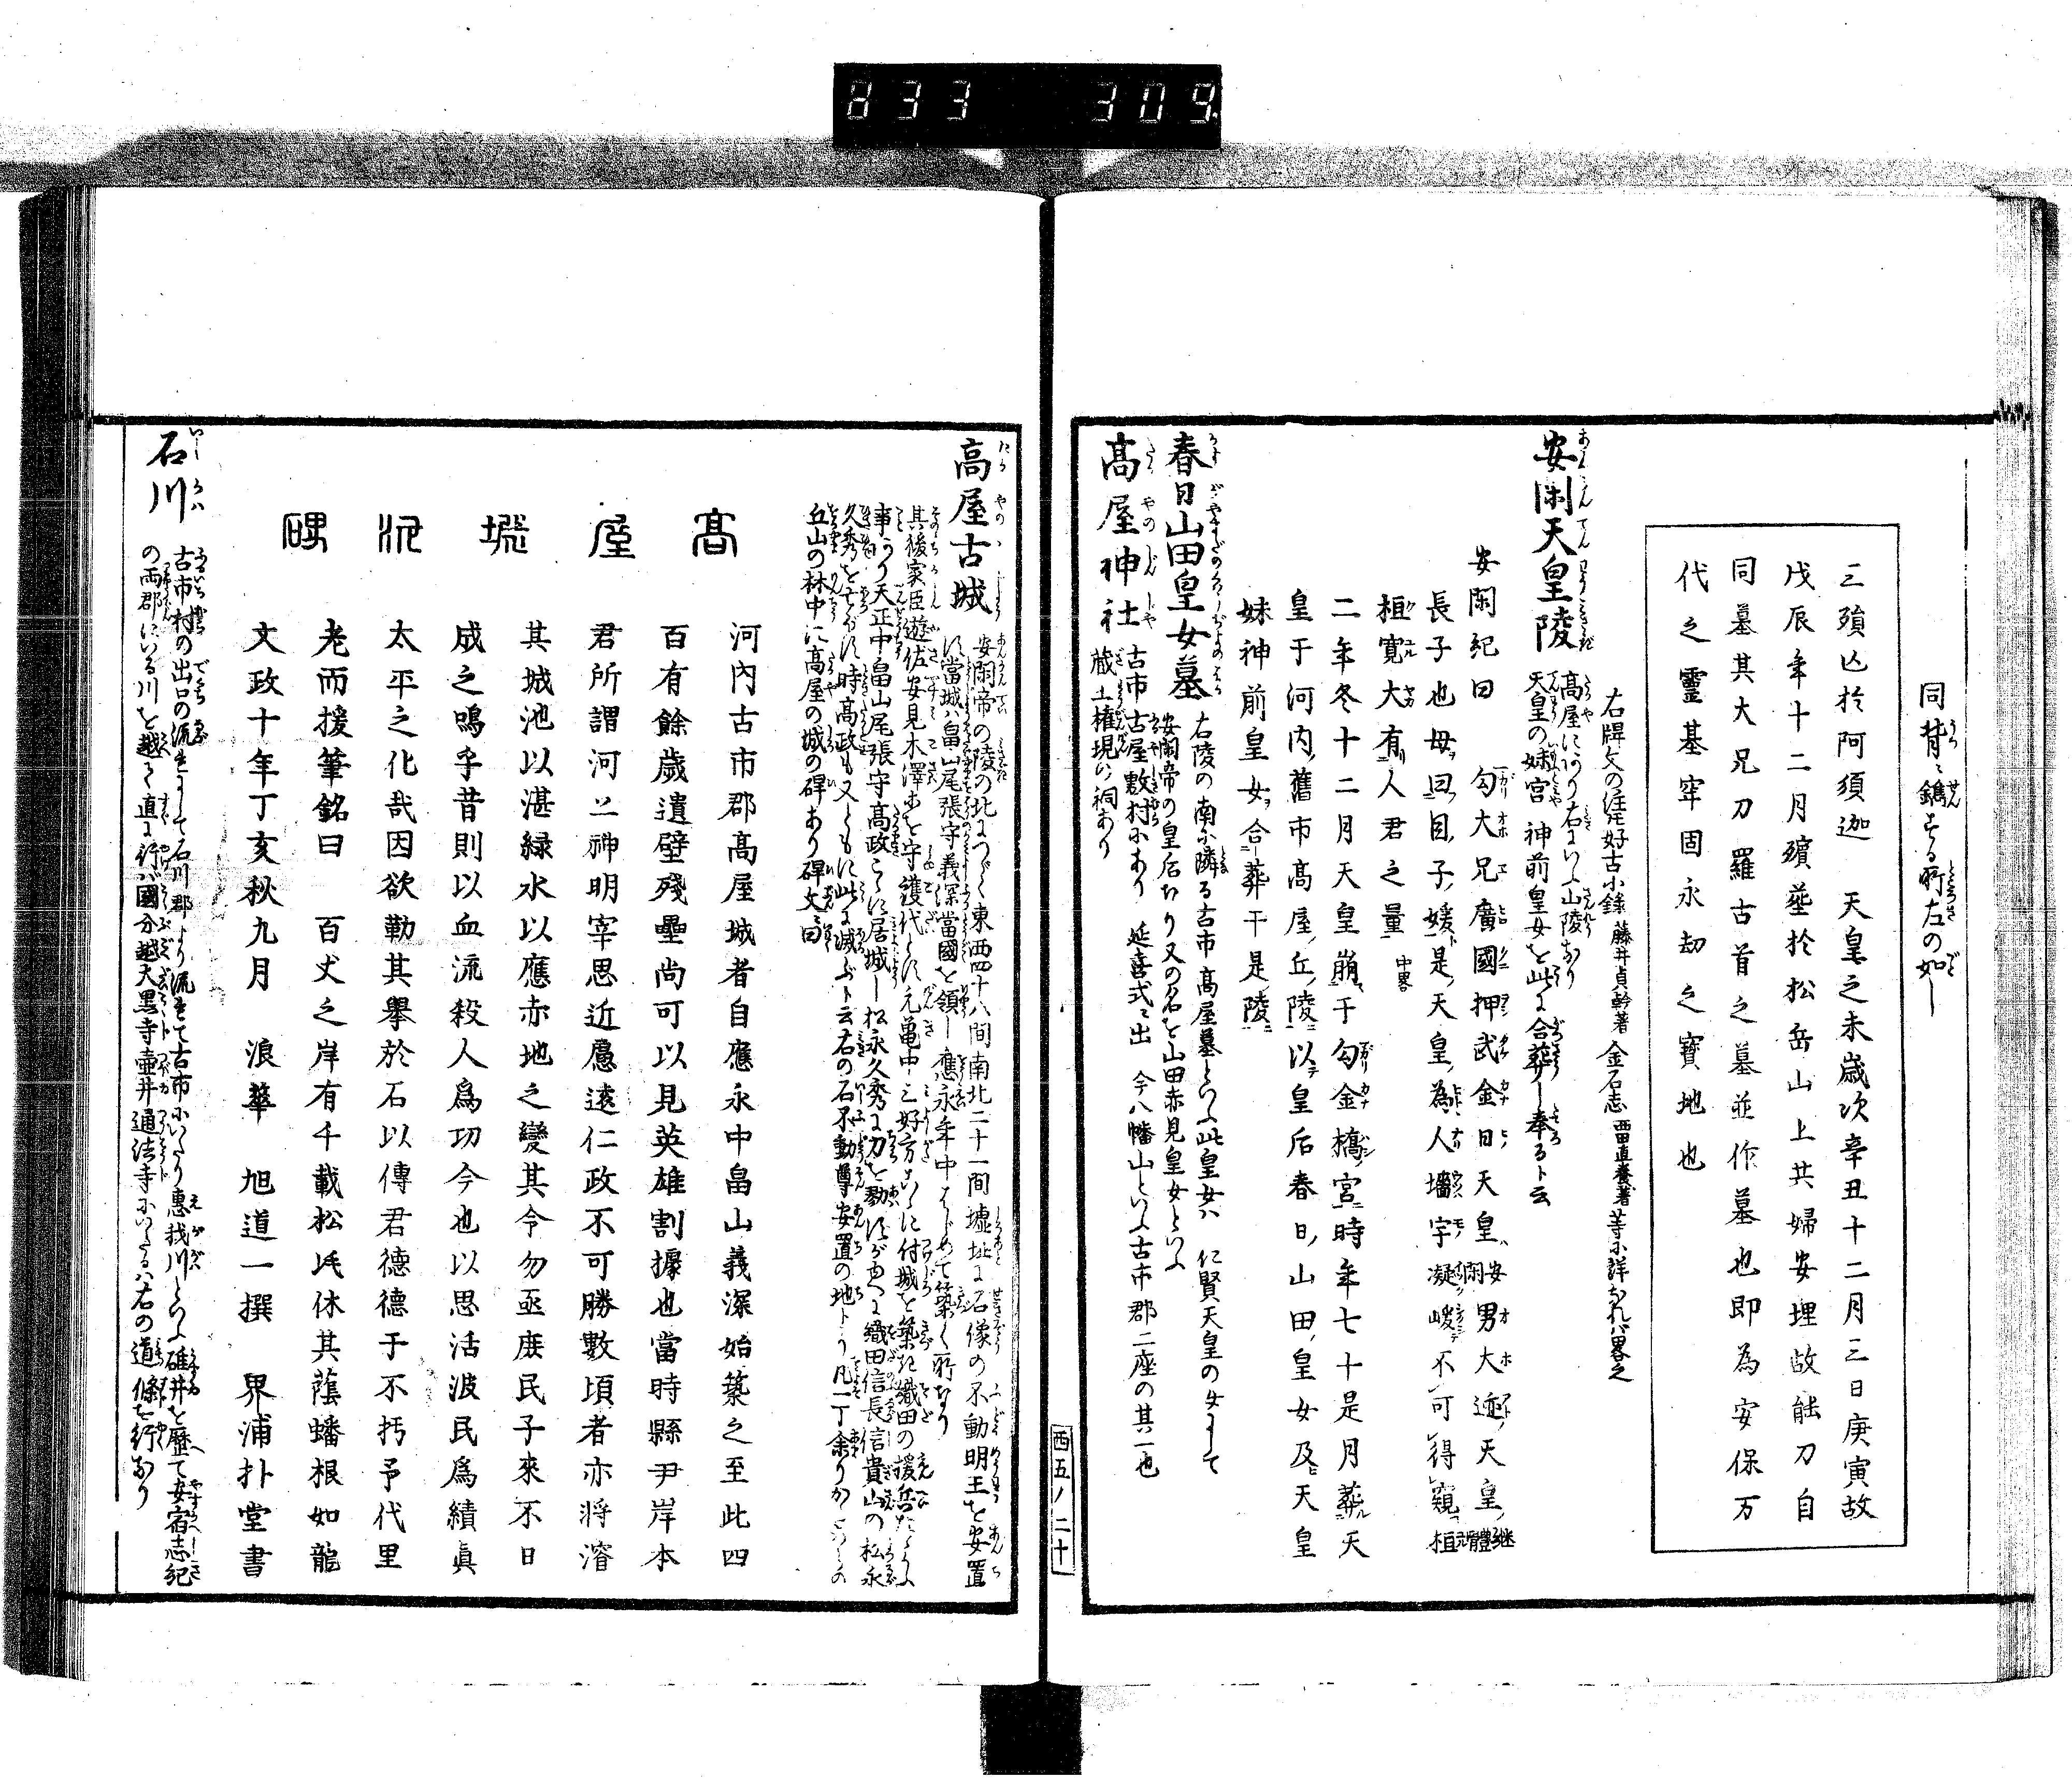 833 309
同背ニ鐫する所左の如し
三殞亾於阿須迦　天皇之末歳次辛丑十二月三日庚寅故
戊辰年十二月殯葬於松岳山上共婦安理故能刀自
同墓其大兄刀羅古首之墓並作墓也即為安保万
代之靈基牢固永劫之寶地也
右牌文の注好古小錄 藤井貞幹著 金石志 西田直養著 等に詳なれバ畧之
安閑天皇陵
高屋にあり右にいふ山陵なり
天皇の妹宮 神前皇女を此に合葬し奉るト云
安閑紀曰　勾大兄廣國押武金日天皇 安閑 男大迹天皇 継體
長子也母曰目子媛是天皇為人墻宇凝峻不可得窺 桓
桓寛大有人君之量 中畧
二年冬十二月天皇崩于勾金橋宮時年七十是月葬天
皇于河内舊市高屋丘陵以皇后春日山田皇女及天皇
妹神前皇女合葬于是陵
春日山田皇女墓
右陵の南に隣る古市高屋墓といふ此皇女ハ 仁賢天皇の女にて
安閑帝の皇后なり又の名を山田赤見皇女といふ
高屋神社
古市古屋敷村にあり 延喜式ニ出 今八幡山といふ古市郡二座の其一也
蔵王権現の祠あり
西五ノ二十
高屋古城
安閑帝の陵の北につゞく東西四十八間南北二十一間墟址に石像の不動明王を安置
す當城ハ畠山尾張守義深當國を領し應永年中はじめて築く所なり
其後家臣遊佐安見木澤等を守護代とす元亀中三好方こゝに付城を築き織田の援兵たゝかふ
事あり天正中畠山尾張守高政こゝに居城し松永久秀に力を勠すがゆへに織田信長信貴山の松永
久秀をせめず時高政も又ともに此に滅ぶト云右の石不動尊安置の地より凡一丁余りかたはらの
丘山の林中に高屋の城の碑あり碑文ニ曰
高屋城池碑
河内古市郡高屋城者自應永中畠山義深始築之至此四
百有餘歳遺壁殘壘尚可以見英雄割據也當時縣尹岸本
君所謂河上神明宰思近慮遠仁政不可勝數頃者亦将濬
其城池以湛緑水以應赤地之變其令勿亟庶民子來不日
成之鳴乎昔則以血流殺人爲功今也以思活波民爲績眞
太平之化哉因欲勒其擧於石以傳君德德于不朽予代里
老而援筆銘曰　百丈之岸有千載松民休其蔭蟠根如龍
文政十年丁亥秋九月　浪華　旭道一撰　界浦朴堂書
石川
古市村の出口の流をまして石川郡より流れて古市にいたり惠我川といふ碓井を歴て安宿志紀
の両郡にいる川を越えて直に行バ國分越大黒寺壷井通法寺にいたるハ右の道條を行なり